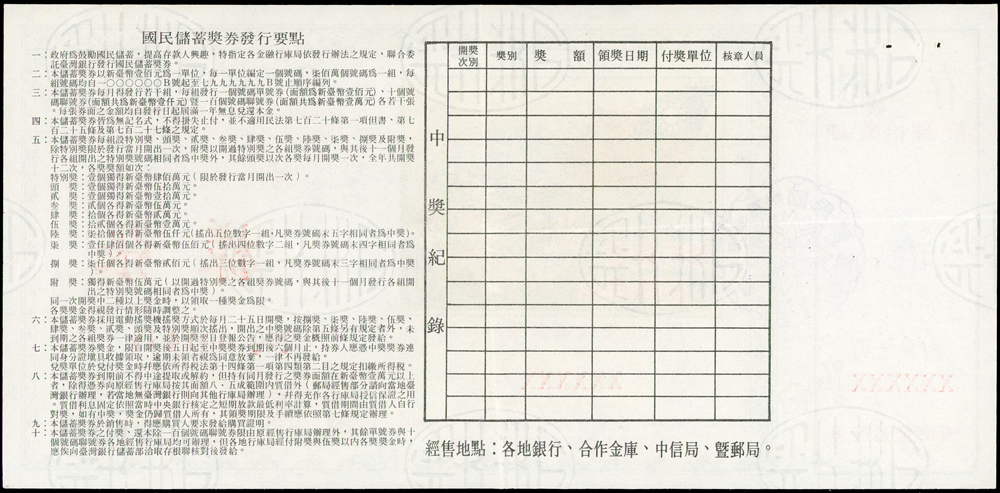 國民儲蓄獎券發行要點
一：政府為鼓勵國民儲蓄，提高存款人興趣，特指定各金融行庫局依發行辦法之規定，聯合委
託臺灣銀行發行國民儲蓄獎券。
二：本儲蓄獎券以新臺幣壹佰元為一單位，每一單位編定一個號碼，柒佰萬個號碼為一組，每
組號碼均自一〇〇〇〇〇〇B號起至七九九九九九九B號止順序編列。
三：本儲蓄獎券每月得發行若干組，每組發行一個號碼單號券（面額為新臺幣壹佰元）、十個號
碼聯號券（面額共為新臺幣壹仟元）暨一百個號碼聯號券（面額共為新臺幣壹萬元）各若干張
。每張券面之金額均自發行日起屆滿一年無息兌還本金。
四：本儲蓄獎券皆為無記名式，不得掛失止付，並不適用民法第七百二十條第一項但書、第七
百二十五條及第七百二十七條之規定。
五：本儲蓄獎券每組設特別獎、頭獎、貳獎、叁獎、肆獎、伍獎、陸獎、柒獎、捌獎及附獎，
除特別獎限於發行當月開出一次，附獎以開過特別獎之各組獎券號碼，與其後十一個月發
行各組開出之特別獎號碼相同者為中獎外，其餘頭獎以次各獎每月開獎一次，全年共開獎
十二次，各獎獎額如次：
特別獎：壹個獨得新臺幣肆佰萬元（限於發行當月開出一次）。
頭　獎：壹個獨得新臺幣伍拾萬元。
貳　獎：壹個獨得新臺幣壹拾萬元。
叁　獎：貳個各得新臺幣伍萬元。
肆　獎：拾個各得新臺幣貳萬元。
伍　獎：拾貳個各得新臺幣壹萬元。
陸　獎：柒拾個各得新臺幣伍仟元（搖出五位數字一組，凡獎券號碼末五字相同者為中獎）。
柒　獎：壹仟肆佰個各得新臺幣伍佰元（搖出四位數字二組，凡獎券號碼末四字相同者為
中獎）。
捌　獎：柒仟個各得新臺幣貳佰元（搖出三位數字一組，凡獎券號碼末三字相同者為中獎
）。
附　獎：獨得新臺幣伍萬元（以開過特別獎之各組獎券號碼，與其後十一個月發行各組開
出之特別獎號碼相同者為中獎）。
同一次開獎中二種以上獎金時，以領取一種獎金為限。
各獎獎金得視發行情形隨時調整之。
六：本儲蓄獎券採用電動搖獎機搖獎方式於每月二十五日開獎，按捌獎、柒獎、陸獎、伍獎、
肆獎、叁獎、貳獎、頭獎及特別獎順次搖出，開出之中獎號碼除第五條另有規定者外，未
到期之各組獎券一律適用，並於開獎翌日登報公告，應得之獎金概照前條規定發給。
七：本儲蓄獎券獎金，限自開獎後五日起至中獎獎券到期後六個月止，持券人應憑中獎獎券連
同身分證填具收據領取，逾期未領者視為同意放棄，一律不再發給。
兌獎單位於兌付獎金時并應依所得稅法第十四條第一項第四類第二目之規定扣繳所得稅。
八：本儲蓄獎券到期前不得中途提取或解約，但持有同月發行之獎券面額在新臺幣壹萬元以上
者，除得憑券向原經售行庫局按其面額八．五成範圍內質借外（郵局經售部分請向當地臺
灣銀行辦理，若當地無臺灣銀行則向其他行庫局辦理），并得充作各行庫局授信保證之用
。質借利息固定依照當時中央銀行核定之短期放款最低利率計算，質借期間由質借人自行
對獎，如有中獎，獎金仍歸質借人所有，其領獎期限及手續應依照第七條規定辦理。
九：本儲蓄獎券於銷售時，得應購買人要求發給購買證明。
十：本儲蓄獎券之付獎、還本除一百個號碼聯號券限由原經售行庫局辦理外，其餘單號券與十
個號碼聯號券各地經售行庫局均可辦理，但各地行庫局經付附獎與伍獎以內各獎獎金時，
應俟向臺灣銀行儲蓄部洽取存根聯核對後發給。
中獎紀錄
開獎次別　獎別　獎額　領獎日期　付獎單位　核章人員
經售地點：各地銀行、合作金庫、中信局、暨郵局。